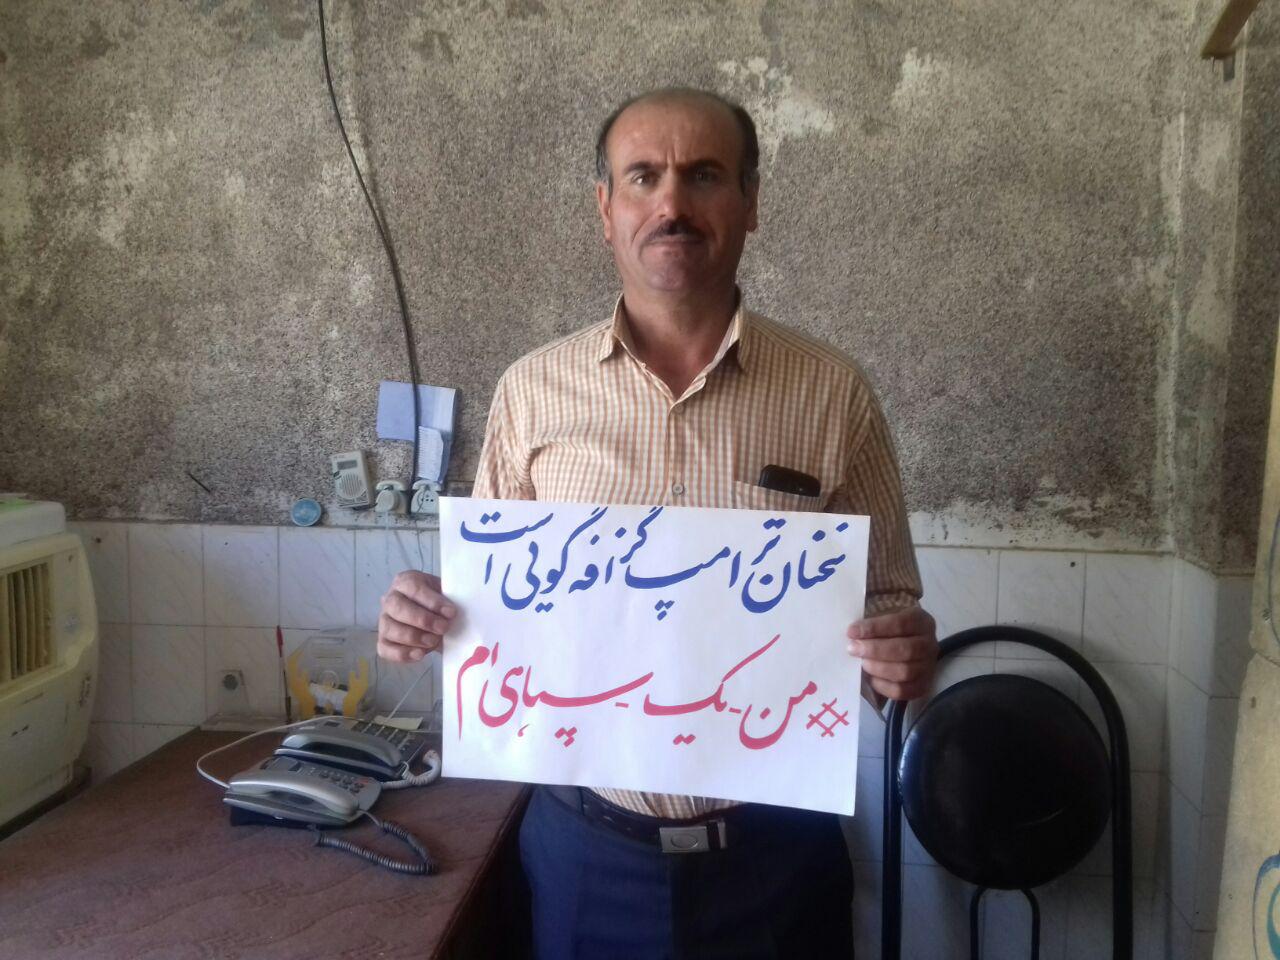 سخنان ترامپ گزافه گویی است
#من_یک_سپاهی ام